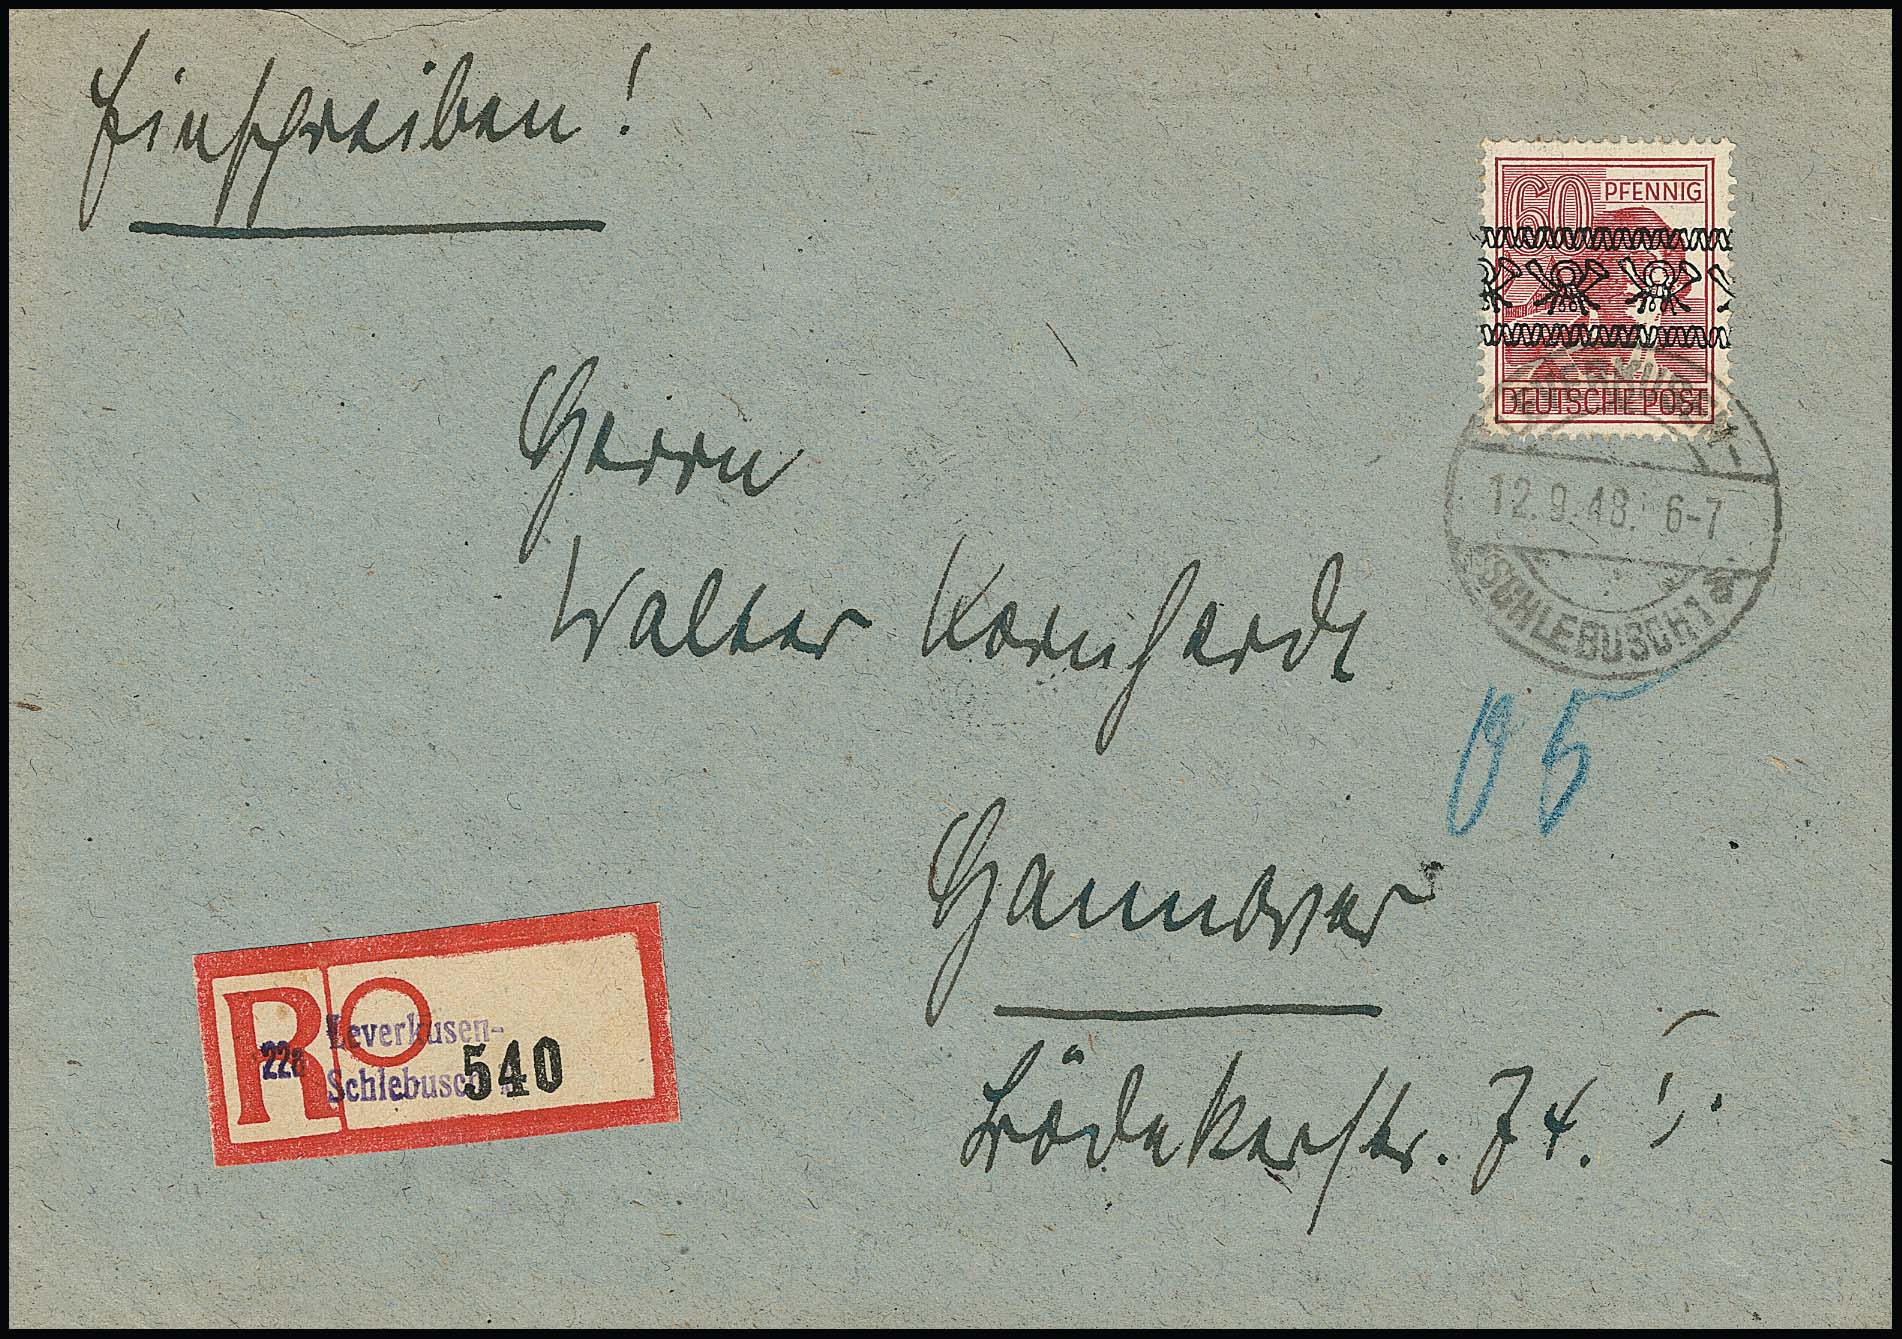 Einschreiben!
60 PFENNIG
DEUTSCHE POST
12.9.48. 6-7
SCHLEBUSCH 1
a
Herrn
Walter Kornherdt
05
Hannover
22a
Leverkusen-
Schlebusch
R
540
Bödekerstr. 74. I.